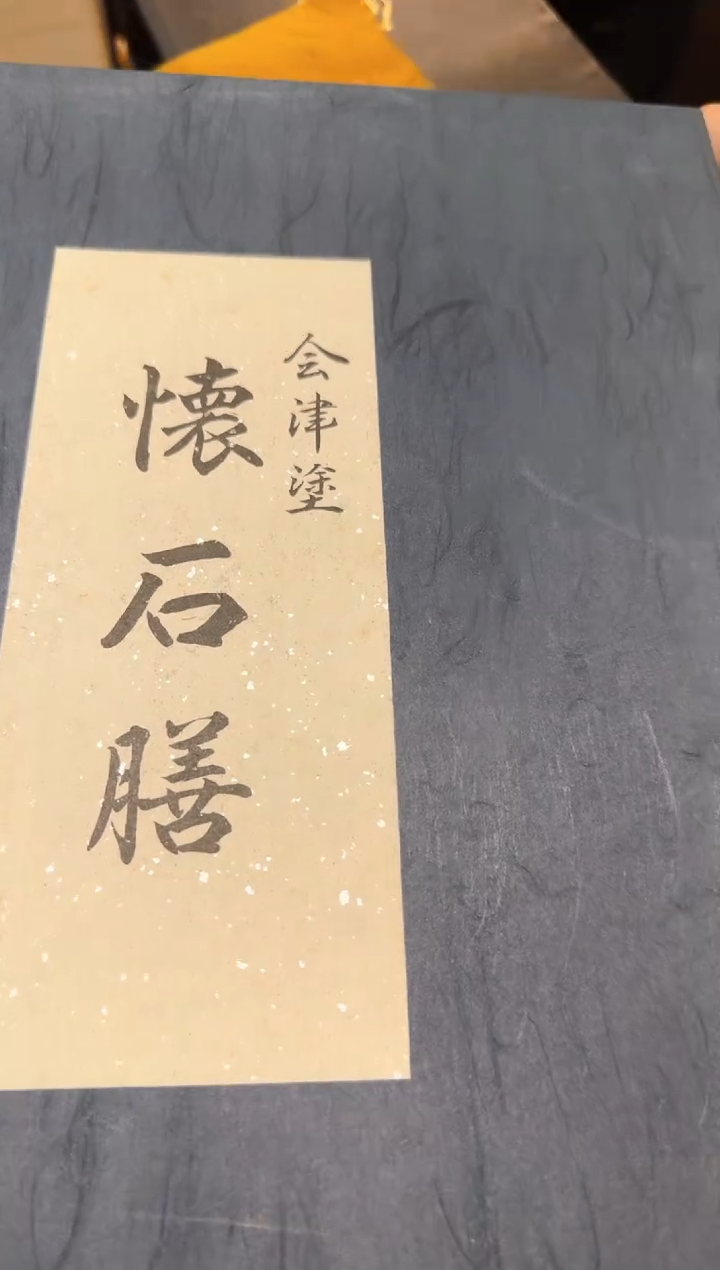 会津塗
懐石膳